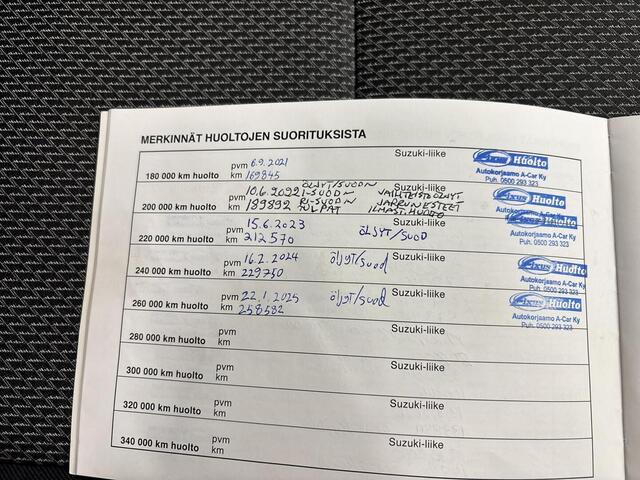 MERKINNÄT HUOLTOJEN SUORITUKSISTA
180 000 km huolto pvm 6.9.2021 Suzuki-liike
km 169845
AXUS Huolto
Autokorjaamo A-Car Ky
Puh. 0500 293 323
200 000 km huolto pvm 10.6.2022 ÖLJYT/SUODN Suzuki-liike
km 189892 I-SUODN VAIHTEISTOÖLJYT
RI-SUODN JARRUNESTEET
TULPAT ILMAST.HUOLTO
Huolto
Autokorjaamo A-Car Ky
Puh. 0500 293 323
220 000 km huolto pvm 15.6.2023 ÖLJYT/SUOD Suzuki-liike
km 212570
240 000 km huolto pvm 16.2.2024 öljyt/suod Suzuki-liike
km 229750
AXUS Huolto
Autokorjaamo A-Car Ky
Puh. 0500 293 323
260 000 km huolto pvm 22.1.2025 öljyt/suod Suzuki-liike
km 258582
AXUS Huolto
Autokorjaamo A-Car Ky
Puh. 0500 293 323
280 000 km huolto pvm Suzuki-liike
km
300 000 km huolto pvm Suzuki-liike
km
320 000 km huolto pvm Suzuki-liike
km
340 000 km huolto pvm Suzuki-liike
km